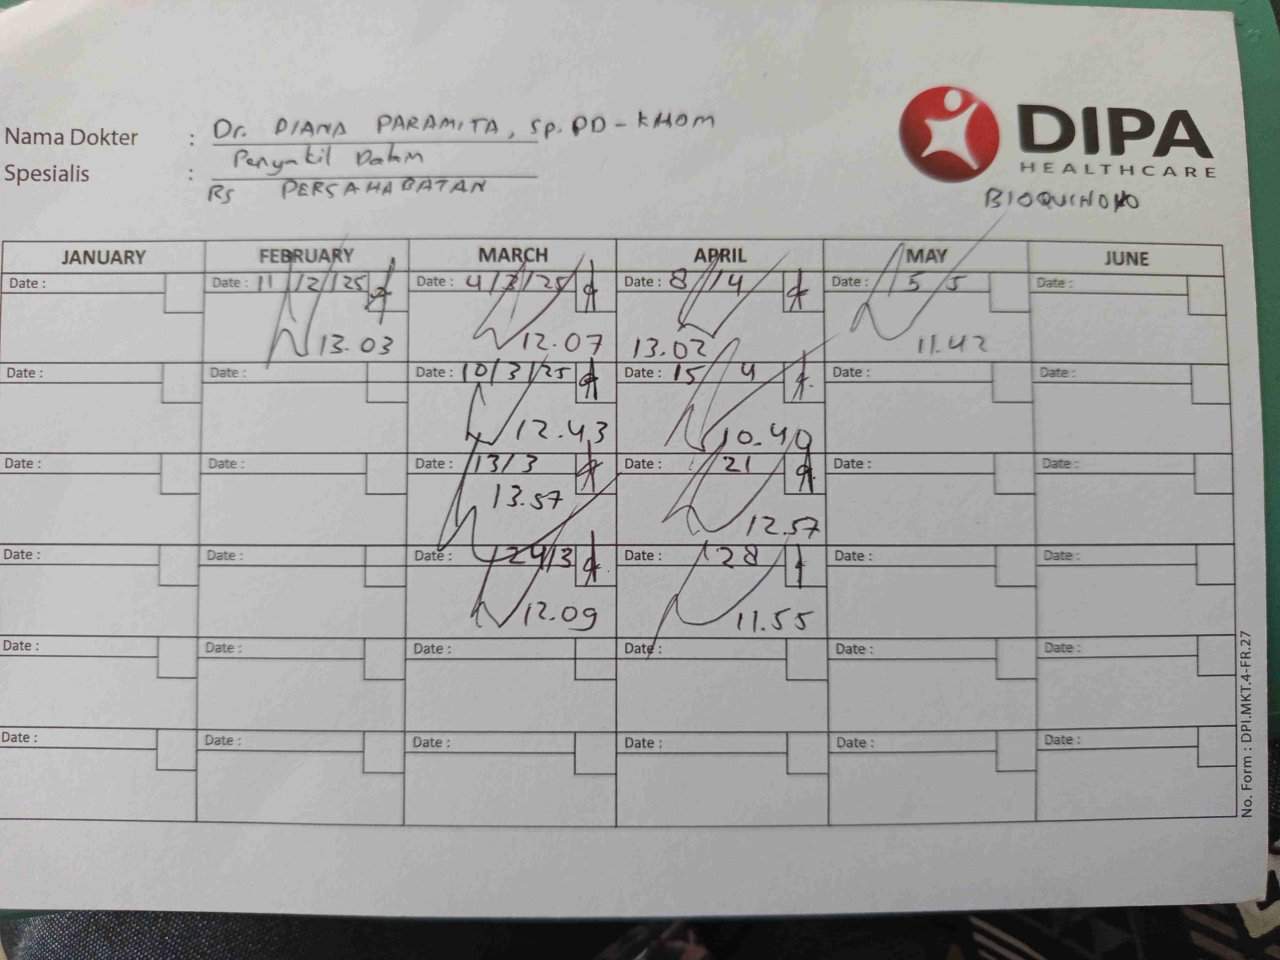 Nama Dokter : Dr. DIANA PARAMITA, Sp.PD-KHOM
Spesialis : Penyakit Dalam
RS PERSAHABATAN
DIPA
HEALTHCARE
JANUARY FEBRUARY MARCH APRIL MAY JUNE
Date : Date : 11/2/25 Date : 4/3/25 Date : 8/4 Date : 5 5 Date :
13.03 12.07 13.02 11.42
Date : Date : Date : 10/3/25 Date : 15/4 Date : Date :
12.43 10.40
Date : Date : Date : 13/3 Date : 21 Date : Date :
13.57 12.57
Date : Date : Date : 24/3 Date : 28 Date : Date :
12.09 11.55
Date : Date : Date : Date : Date : Date :
Date : Date : Date : Date : Date : Date :
No. Form : DPI.MKT.4-FR.27